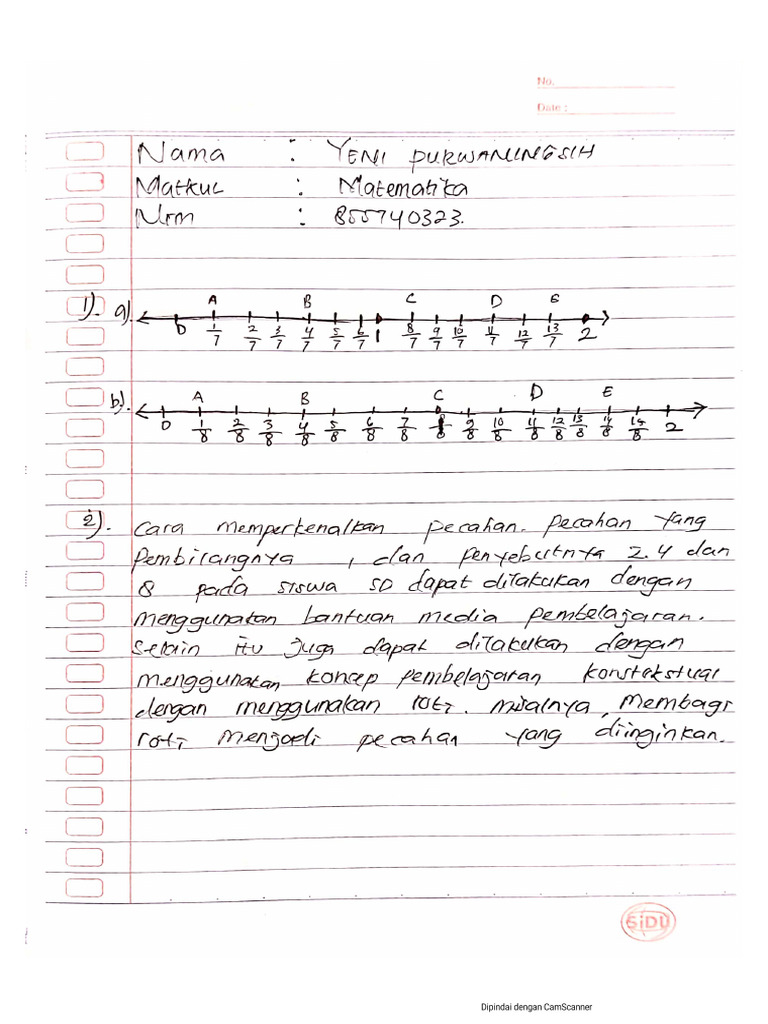 No.
Date :
Nama : YENI PURWANINGSIH
Matkul : Matematika
Nim : 855740323.
1). a). A B C D E
0 1/7 2/7 3/7 4/7 5/7 6/7 1 8/7 9/7 10/7 11/7 12/7 13/7 2
b). A B C D E
0 1/8 2/8 3/8 4/8 5/8 6/8 7/8 8/8 9/8 10/8 11/8 12/8 13/8 14/8 15/8 2
2). Cara memperkenalkan pecahan. pecahan yang
Pembilangnya , dan penyebutnya 2.4 dan
8 pada siswa SD dapat dilakukan dengan
menggunakan bantuan media pembelajaran.
Selain itu juga dapat dilakukan dengan
menggunakan koncep pembelajaran konstekstual
dengan menggunakan roti. misalnya, membagi
roti menjadi pecahan yang diinginkan.
SiDU
Dipindai dengan CamScanner